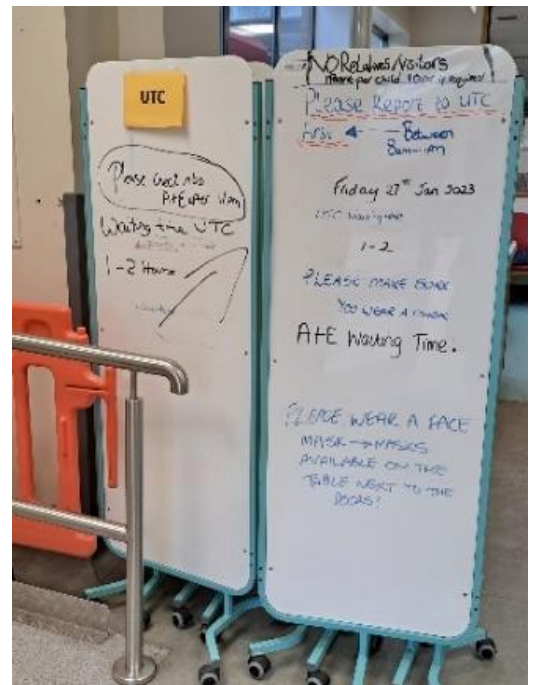 UTC
Please check into
A+E after 11pm
Waiting time UTC
1-2 Hours
NO Relatives/Visitors
1 Parent per child 1 Carer if required
Please Report to UTC
first Between
8am-11pm
Friday 27th Jan 2023
UTC
1-2
PLEASE MAKE SURE
YOU WEAR A MASK
A+E Waiting Time.
PLEASE WEAR A FACE
MASK → MASKS
AVAILABLE ON THE
TABLE NEXT TO THE
DOORS!